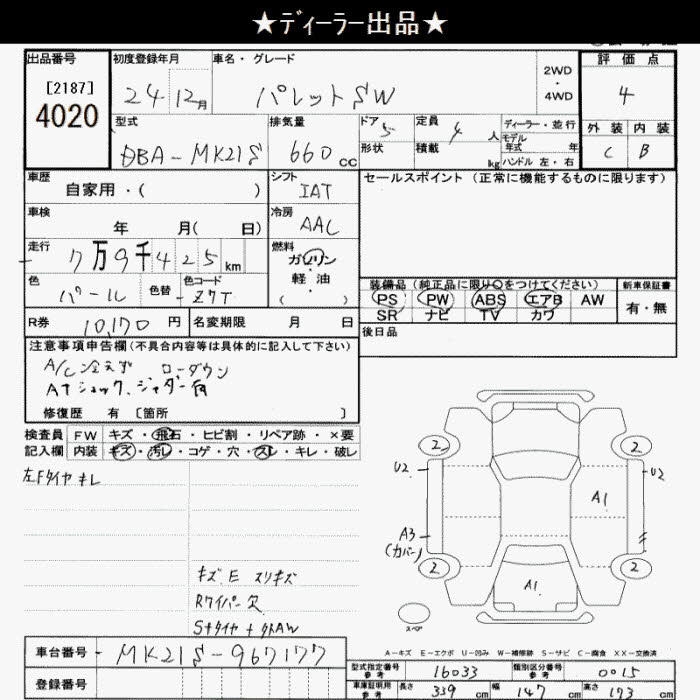 ★ディーラー出品★
出品番号 初度登録年月 車名・グレード 評価点
[2187] 24 12月 パレットSW 2WD・4WD 4
4020
型式 排気量 ドア 5 定員 4人 ディーラー・並行 外装 内装
DBA-MK21S 660cc 形状 積載 kg モデル年式 年 C B
ハンドル 左・右
車歴 シフト セールスポイント (正常に機能するものに限ります)
自家用・( ) IAT
車検 冷房
年 月( 日) AAC
走行 7万9千425km 燃料
ガソリン
軽油
( )
色 パール 色替 色コード Z7T
装備品(純正品に限り○をつけてください) 新車保証書
PS PW ABS エアB AW 有・無
SR ナビ TV カワ
R券 10,170円 名変期限 月 日 後日品
注意事項申告欄(不具合内容等は具体的に記入して下さい)
A/C冷えず ローダウン
ATショック、ジャダー有
修復歴 有 [箇所 ]
検査員 FW キズ・飛石・ヒビ割・リペア跡・×要
記入欄 内装 キズ・汚レ・コゲ・穴・スレ・キレ・破レ
左Fタイヤキレ
2 2
U2 U2
A1
A3
(カバー)
2 2
A1
スペア
キズ E スリキズ
Rワイパー欠
Sナタイヤ+外AW
A-キズ E-エクボ U-凹み W-補修跡 S-サビ C-腐食 XX-交換済
車台番号 MK21S-967177
型式指定番号 参考 16033 類別区分番号 参考 0015
登録番号
車庫証明用 参考 長さ 339cm 幅 147cm 高さ 173cm